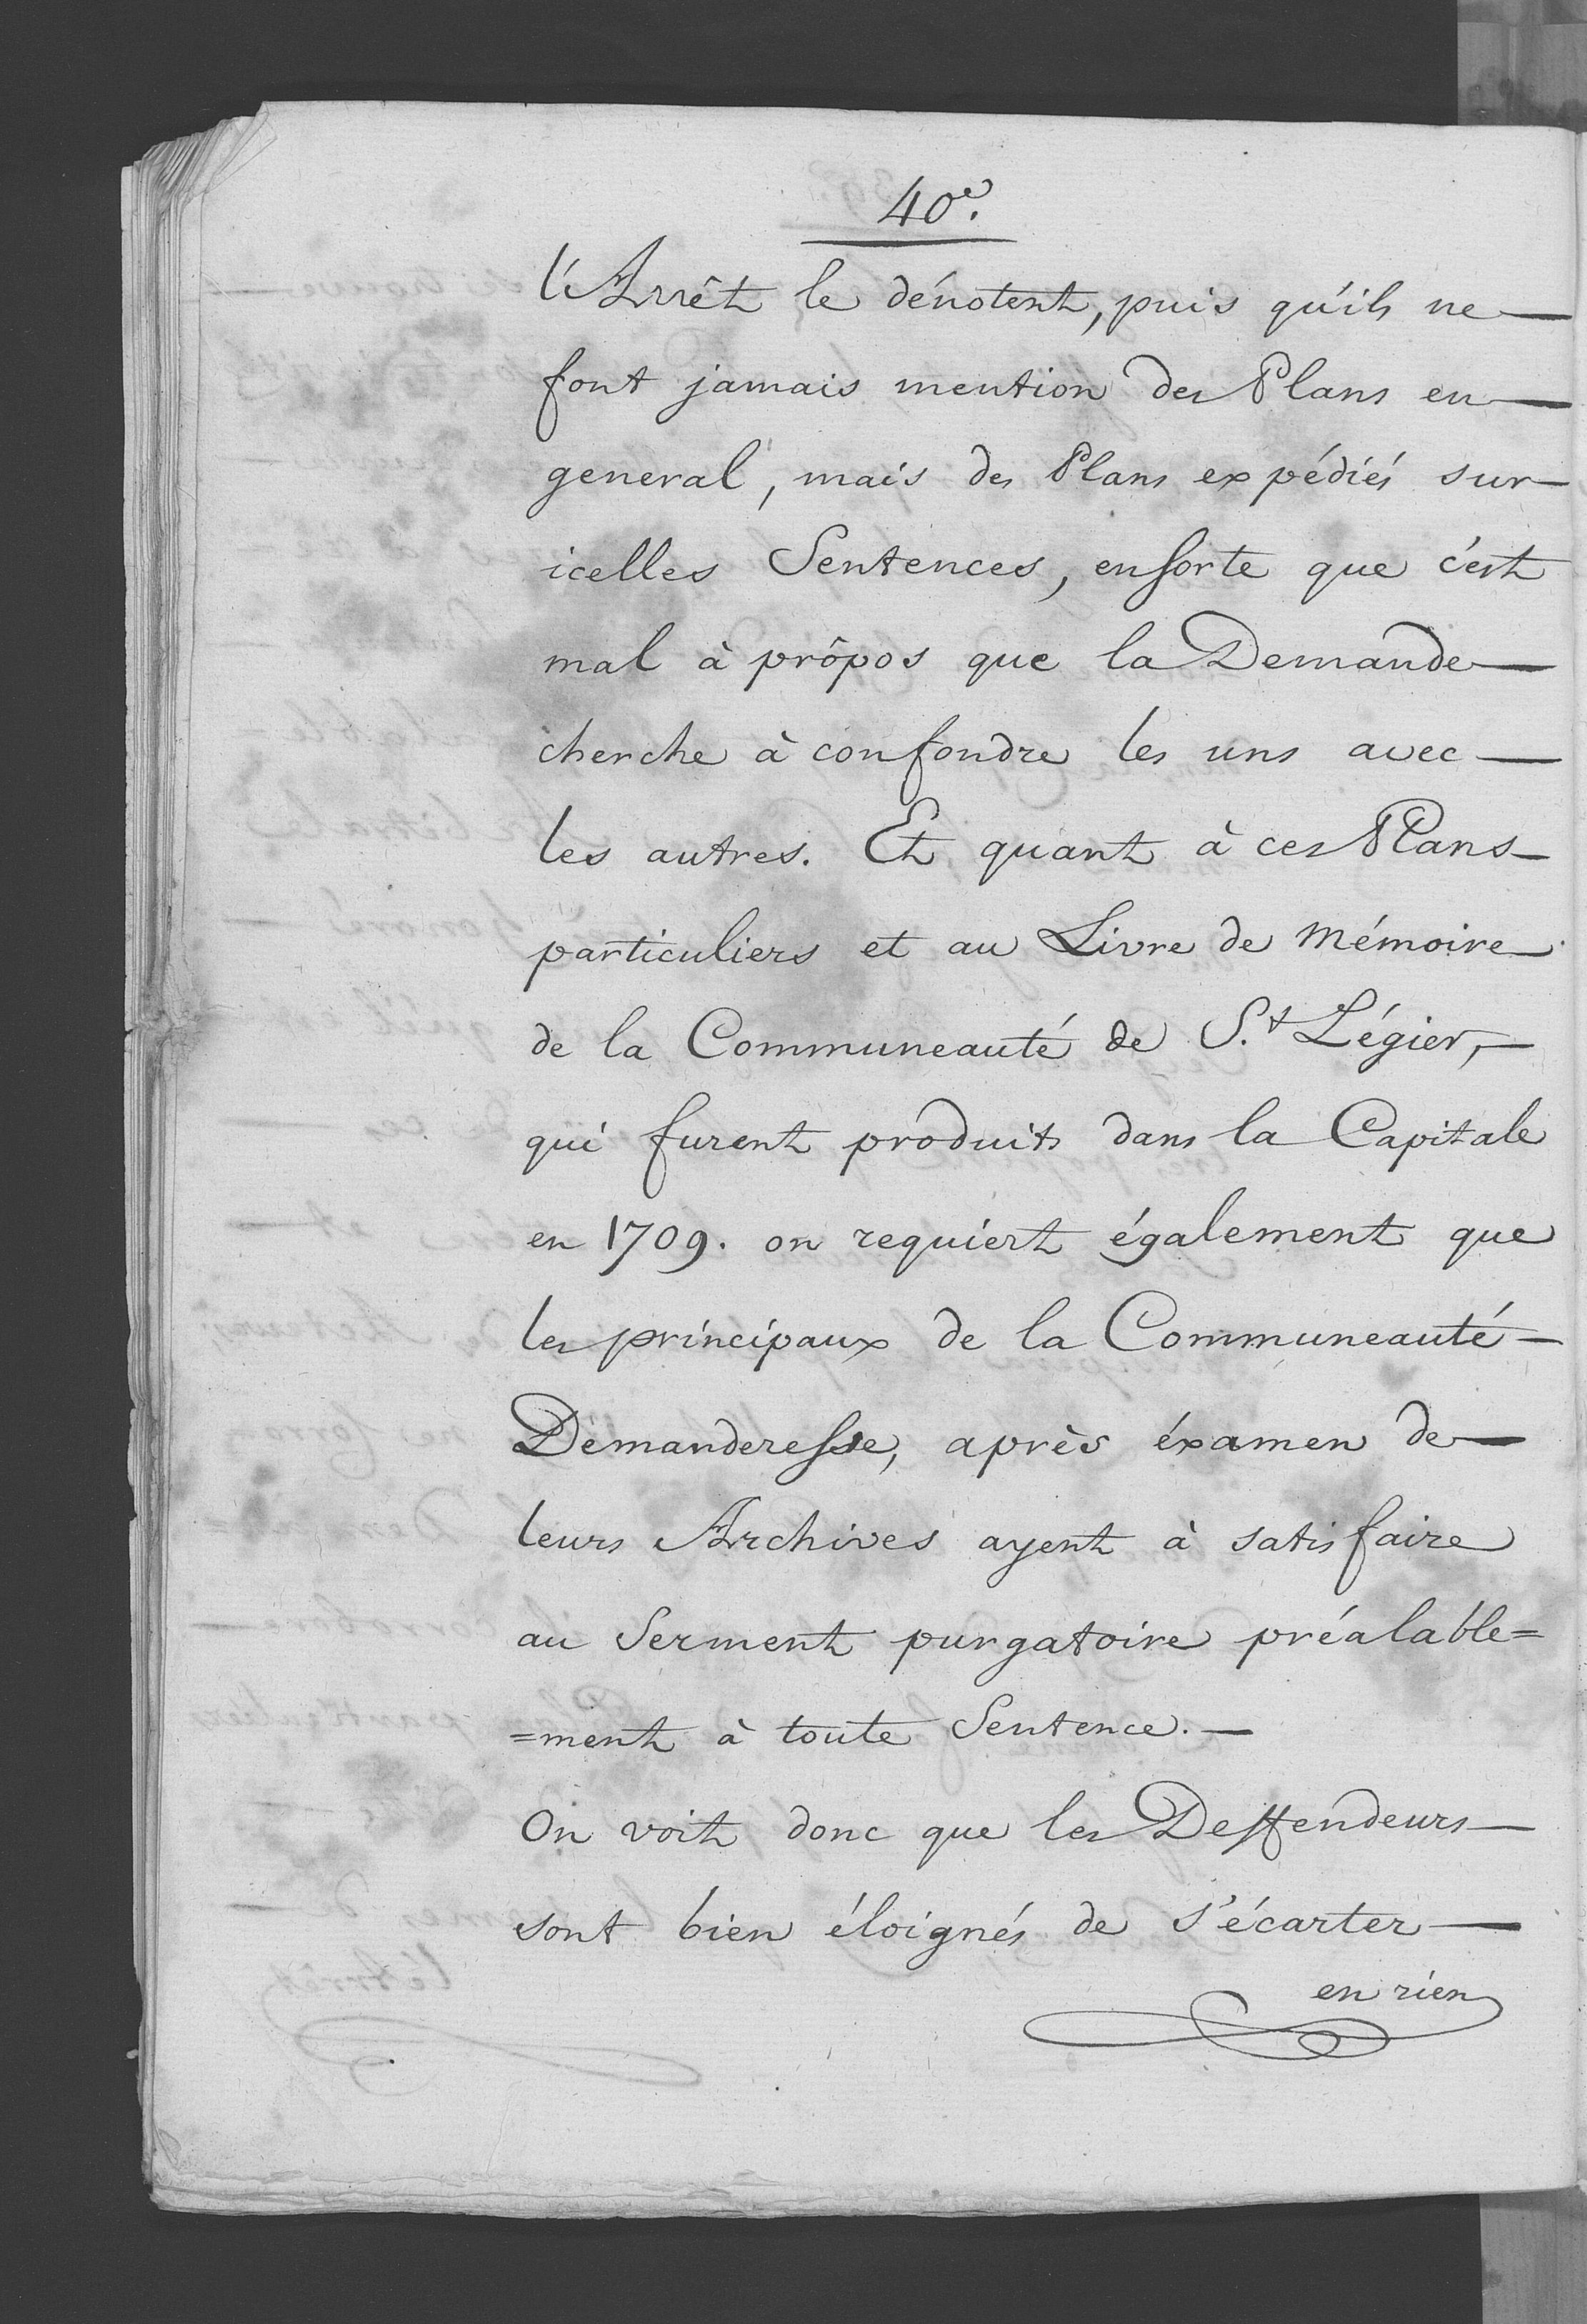 40e.
l'Arrêt le dénotent, puis qu'ils ne —
font jamais mention des Plans en —
general, mais des Plans expédiés sur —
icelles Sentences, ensorte que c'est
mal à propos que la Demande —
cherche à confondre les uns avec —
les autres. Et quant à ces Plans —
particuliers et au Livre de mémoire —
de la Communeauté de S.t Légier, —
qui furent produits dans la Capitale
en 1709. on requiert également que
les principaux de la Communeauté —
Demanderesse, après éxamen de —
leurs Archives ayent à satisfaire
au Serment purgatoire préalable=
=ment à toute Sentence. —
On voit donc que les Deffendeurs —
sont bien éloignés de s'écarter —
en rien